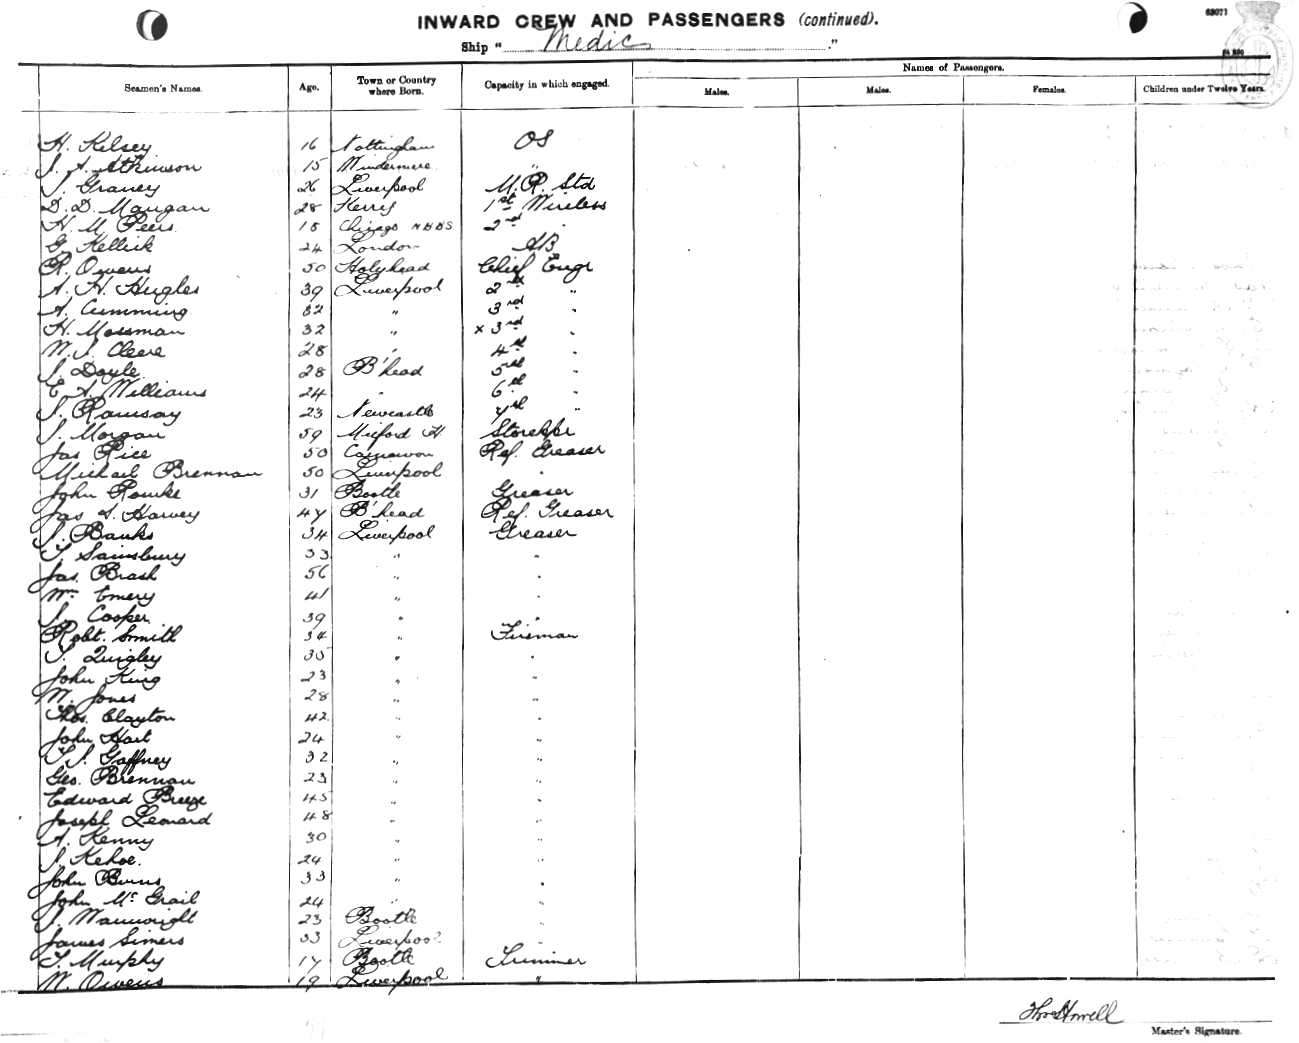 63071
INWARD CREW AND PASSENGERS (continued).
Ship "Medic"
Seamen's Names. Age. Town or Country where Born. Capacity in which engaged. Names of Passengers.
Males. Males. Females. Children under Twelve Years.
H. Kelsey 16 Nottingham OS
J. A. Atkinson 15 Windermere "
J. Graney 26 Liverpool M.R. Std
D. D. Mangan 28 Kerry 1st Wireless
H. M. Peers 18 Chicago 2nd "
G. Kellick 24 London AB
R. Owens 50 Holyhead Chief Engr
A. H. Hughes 39 Liverpool 2nd "
A. Cumming 32 " 3rd "
H. Mossman 32 " x 3rd "
W. J. Cleere 28 " 4th "
J. Doyle 28 B'head 5th "
E. A. Williams 24 " 6th "
J. Ramsay 23 Newcastle 7th "
J. Morgan 59 Milford H Storekpr
Jas Rice 50 Carnarvon Ref. Greaser
Michael Brennan 50 Liverpool "
John Rourke 31 Bootle Greaser
Jas S. Harvey 47 B'head Ref. Greaser
J. Banks 34 Liverpool Greaser
T. Sainsbury 33 " "
Jas. Brash 56 " "
Wm Emery 41 " "
J. Cooper 39 " "
Robt. Smith 34 " Fireman
T. Quigley 35 " "
John King 23 " "
W. Jones 28 " "
Thos. Clayton 42 " "
John Hart 24 " "
T. J. Gaffney 32 " "
Geo. Brennan 23 " "
Edward Breeze 45 " "
Joseph Leonard 48 " "
A. Kenny 30 " "
J. Kehoe. 24 " "
John Burns 33 " "
John McGrail 24 " "
J. Wainwright 23 Bootle "
James Simers 33 Liverpool "
T. Murphy 17 Bootle Trimmer
W. Owens 19 Liverpool "
Thos Howell
Master's Signature.